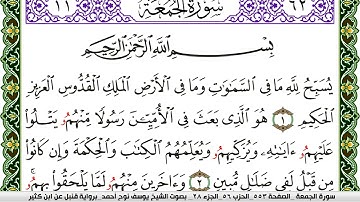 ٦٢ سُورَةُ الجُمُعَةِ ١١
بِسْمِ اللَّهِ الرَّحْمَٰنِ الرَّحِيمِ
يُسَبِّحُ لِلَّهِ مَا فِى السَّمَٰوَٰتِ وَمَا فِى الْأَرْضِ الْمَلِكِ الْقُدُّوسِ الْعَزِيزِ
الْحَكِيمِ ١ هُوَ الَّذِى بَعَثَ فِى الْأُمِّيِّـنَ رَسُولًا مِّنْهُمُۥ يَتْلُوا۟
عَلَيْهِمُۥ ءَايَٰتِهِۦ وَيُزَكِّيهِمُۥ وَيُعَلِّمُهُمُ الْكِتَٰبَ وَالْحِكْمَةَ وَإِن كَانُوا۟
مِن قَبْلُ لَفِى ضَلَٰلٍ مُّبِينٍ ٢ وَءَاخَرِينَ مِنْهُمُۥ لَمَّا يَلْحَقُوا۟ بِهِمُۥ
سورة الجمعة _ الصفحة ٥٥٣ _ الحزب ٥٦ _ الجزء ٢٨ _ بصوت الشيخ يوسف نوح احمد _ برواية قنبل عن ابن كثير